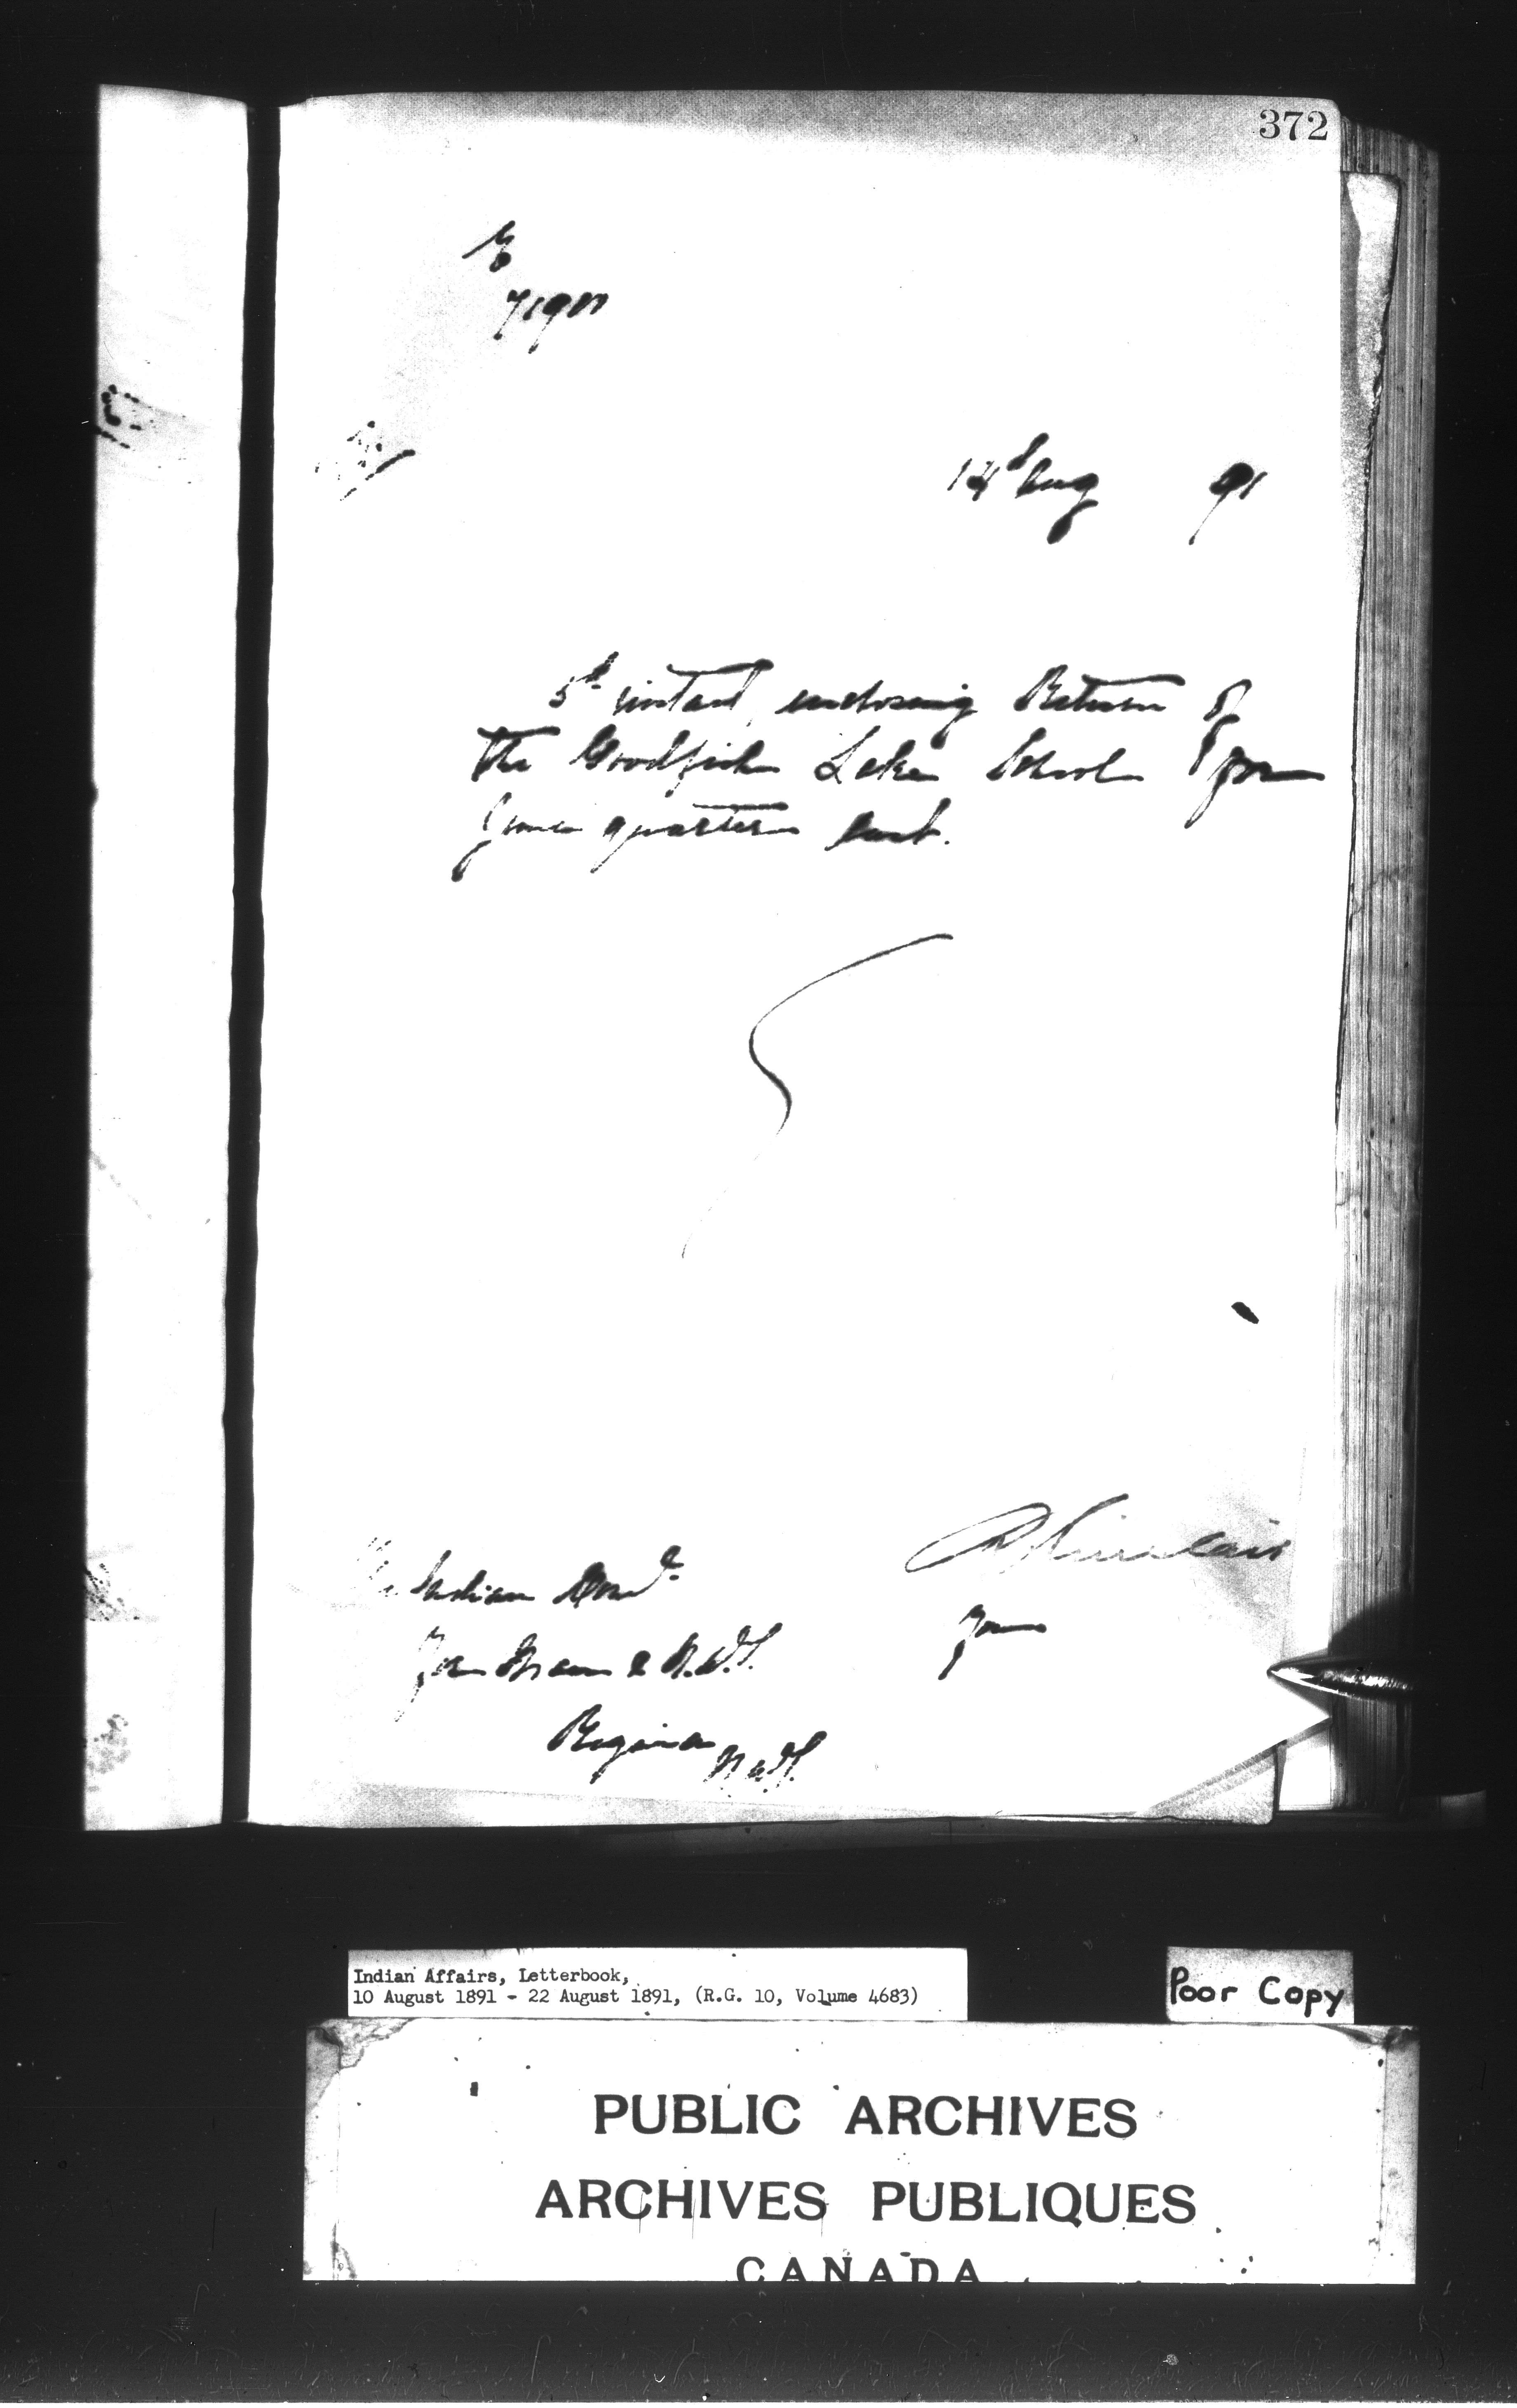 372
14th Aug 91
5th instant, enclosing Return of
the Goodfish Lake School for
June quarter last.
R Sinclair
for
Indian Comr
for Man & N.W.T.
Regina
N.W.T.
Indian Affairs, Letterbook,
10 August 1891 - 22 August 1891, (R.G. 10, Volume 4683)
Poor Copy
PUBLIC ARCHIVES
ARCHIVES PUBLIQUES
CANADA